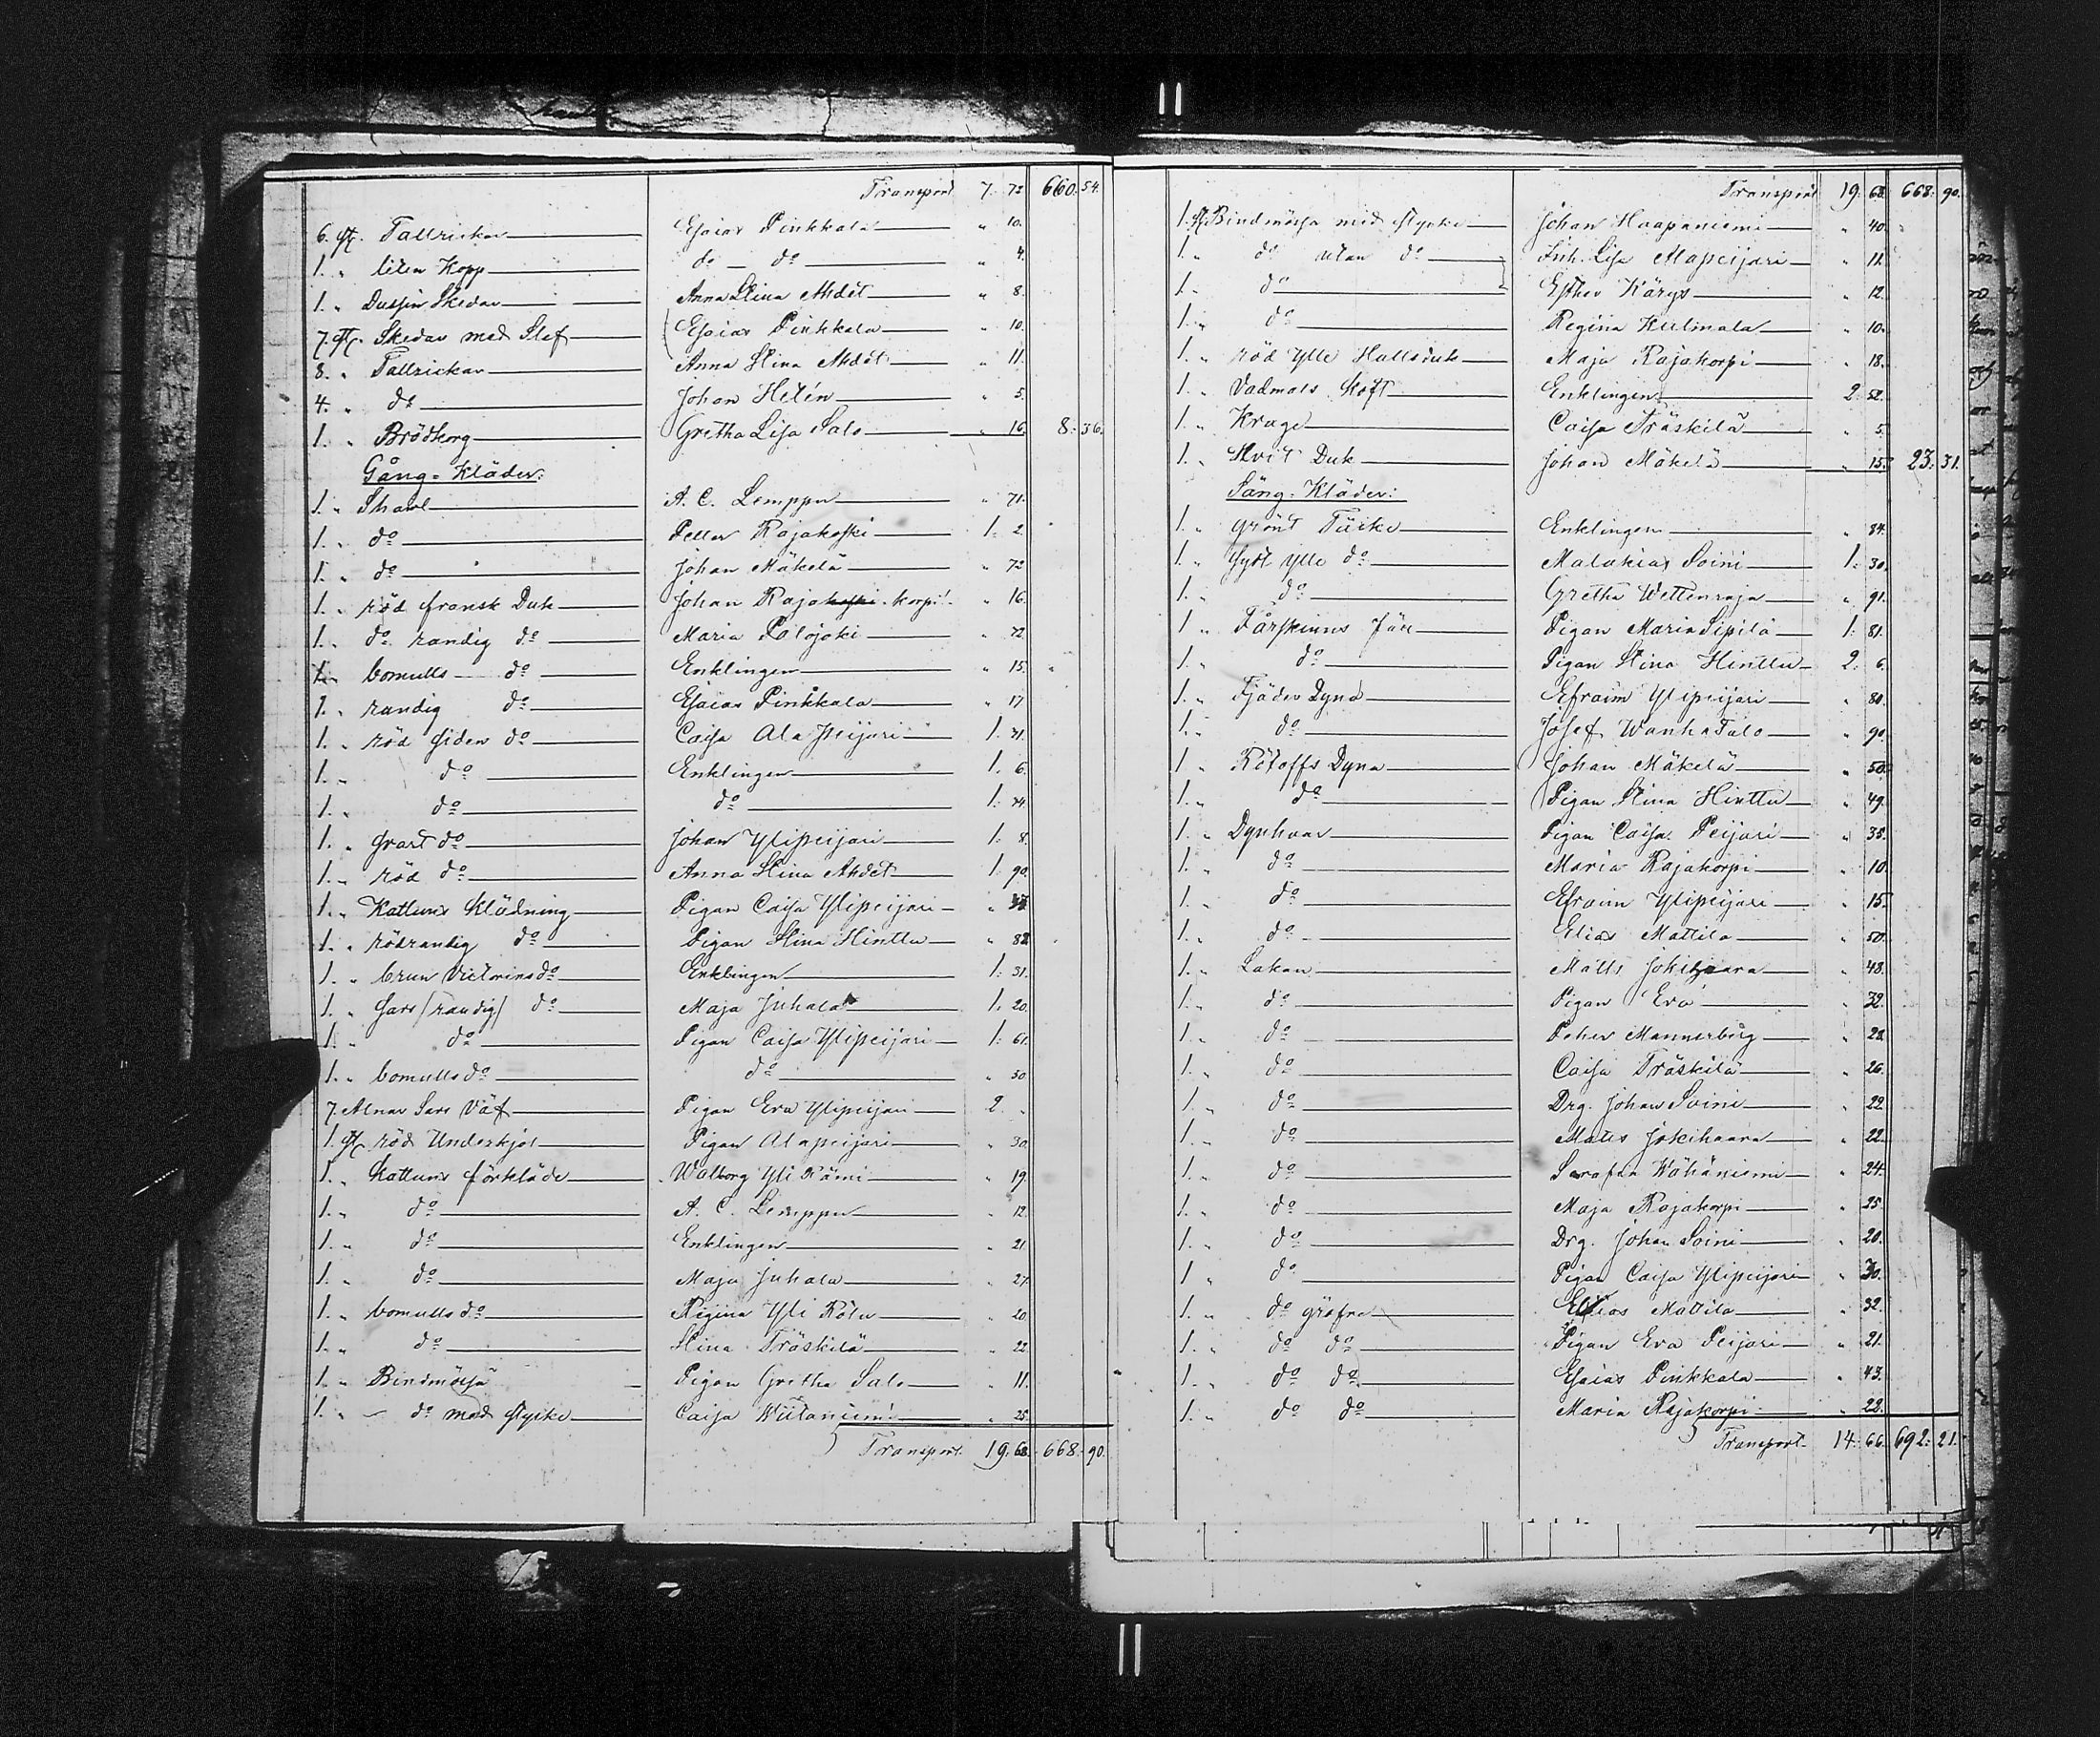 Transport 7: 72 660. 54.
6. st. Tallrickar Esaias Pinkkala " 10.
1. " liten Kopp do — do " 4.
1. " Dussin Skedar Anna Stina Ahdet " 8.
7. st. Skedar med Slef Esaias Pinkkala " 10.
8. " Tallrickar Anna Stina Ahdet " 11.
4. " do Johan Helén " 5.
1. " Brödkorg Gretha Lisa Salo " 16. 8: 36.
Gång-Kläder:
1. " Shawl A. C. Lemppu " 71.
1. " do Petter Rajakoski 1: 2
1. " do Johan Mäkelä " 72
1. " röd fransk Duk Johan Rajakoski korpi " 16.
1. " do randig do Maria Palojoki " 72
1. " bomulls do Enklingen " 15.
1. " randig do Esaias Pinkkala " 17
1. " röd siden do Caisa Ala Peijari 1.
1. " do Enklingen 1. 6.
1. " do do 1.
1. " svart do Johan Ylipeijari 1: 8.
1. " röd do Anna Stina Ahdet 1: 90.
1. " Kattuns Klädning Pigan Caisa Ylipeijari "
1. " rödrandig do Pigan Stina Hinttu " 82.
1. " brun Victorins do Enklingen 1: 31.
1. " Sars /randig/ do Maja Juhala 1. 20.
1. " do Pigan Caisa Ylipeijari 1: 61.
1. " bomulls do do " 50
7. Alnar Sars Väf Pigan Eva Ylipeijari 2. "
1. st. röd Underkjol Pigan Alapeijari " 30.
1. " Kattuns förkläde Walborg Yli Rämi " 19.
1. " do A. C. Lemppu " 12.
1. " do Enklingen " 21.
1. " do Maja Juhala " 27.
1. " bomulls do Regina Yli " 20.
1. " do Stina Träskilä " 22
1. " Bindmössa Pigan Gretha Salo " 11.
1. " do med stycke Caisa Wiitaniemi " 25.
Transport 19. 68. 668. 90.
Transport 19. 68. 668. 90.
1. st. Bindmössa med stycke Johan Haapaniemi " 40.
1. " do utan do Inh. Lisa Alapeijari " 11.
1. " do Esther Kärys " 12.
1. " do Regina Kulmala " 10.
1. " röd ylle Halsduk Maja Rajakorpi " 18.
1. " Vadmals Enklingen 2. 52.
1. " Krage Caisa Träskilä " 5.
1. " Hvit Duk Johan Mäkelä " 15. 23. 31.
Säng-Kläder:
1. " grönt Täcke Enklingen " 84.
1. " sydt ylle do Malakias Soini 1: 30.
1. " do Gretha Wettenraja " 91.
1. " Fårskinns Fäll Pigan Maria Sipilä 1: 81.
1. " do Pigan Stina Hinttu 2: 6.
1. " Fjäder Dyna Efraim Ylipeijari " 80.
1. " do Josef Wanhatalo " 90.
1. " Dyna Johan Mäkelä " 50.
1. " do Pigan Stina Hinttu " 49.
1. " Dynhvar Pigan Caisa Peijari " 35.
1. " do Maria Rajakorpi " 10.
1. " do Efraim Ylipeijari " 15.
1. " do Elias Mattila " 50.
1. " Lakan Matts Jokihaara " 48.
1. " do Pigan Eva " 32.
1. " do Peter Mannerberg " 28.
1. " do Caisa Träskilä " 26.
1. " do Drg. Johan Soini " 22.
1. " do Matts Jokihaara " 22.
1. " do Serafia Wähäniemi " 24.
1. " do Maja Rajakorpi " 25.
1. " do Drg. Johan Soini " 20.
1. " do Pigan Caisa Ylipeijari " 30.
1. " do gröfre Elias Mattila " 32.
1. " do do Pigan Eva Peijari " 21.
1. " do do Esaias Pinkkala " 43.
1. " do do Maria Rajakorpi " 22.
Transport 14: 66. 692: 21.